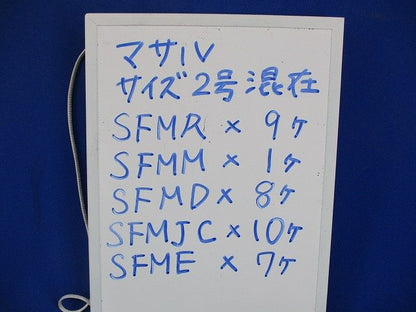 マサIV
サイズ2号混在
SFMR × 9ケ
SFMM × 1ケ
SFMD × 8ケ
SFMJC × 10ケ
SFME × 7ケ